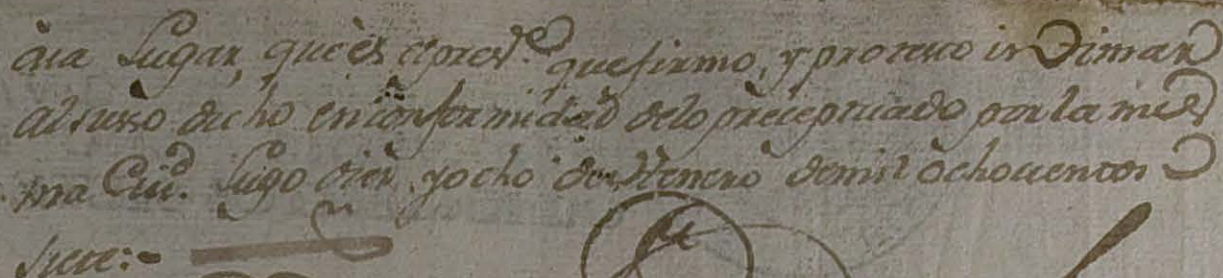 aia Lugar, que es el pres.te que firmo, y protexto intimar
al suso dicho en conformidad delo preceptuado por la mis
ma Ciu.d Lugo diez, yocho de Henero demil ôchocientos
siete:-